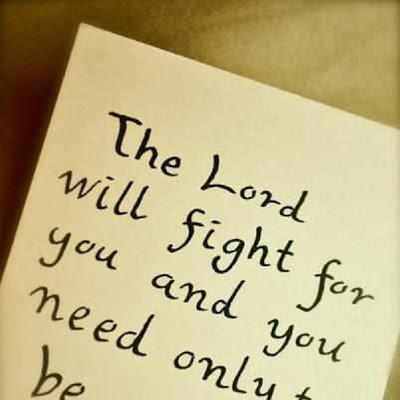 The Lord
will fight for
you and you
need only t
be